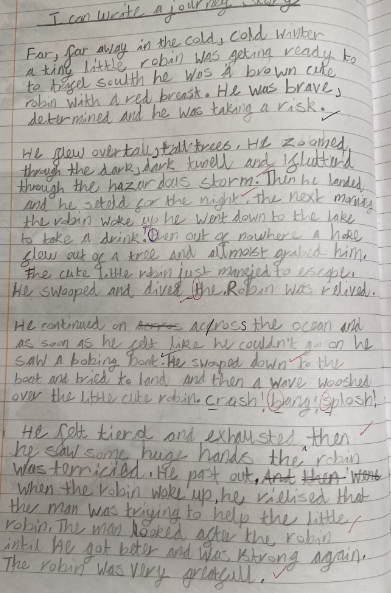 I can write a journey story
Far, far away in the cold, cold winter
a tiny little robin was geting ready to
to travel south he was a brown cute
robin with a red breast. He was brave,
determined and he was taking a risk.
He flew over tall, tall trees. He zoomed
through the dark, dark tunell and flutterd
through the hazardous storm. Then he landed
and he seteld for the night. the next morning
the robin woke up he went down to the lake
to take a drink. Then out of nowhere a hake
flew out of a tree and allmost grabed him.
The cute little robin just manejed to escape.
He swooped and dived the Robin was relived.
He continued on across the ocean and
as soon as he felt like he couldn't go on he
saw a bobing boat. He swooped down to the
boat and tried to land and then a wave wooshed
over the little cute robin. crash! bang! splosh!
He felt tierd and exhausted then
he saw some huge hands the robin
was terricied. He past out. And then went
when the robin woke up, he rielised that
the man was triying to help the little
robin. The man looked after the robin
intil he got beter and was strong again.
The robin was very greatfull.